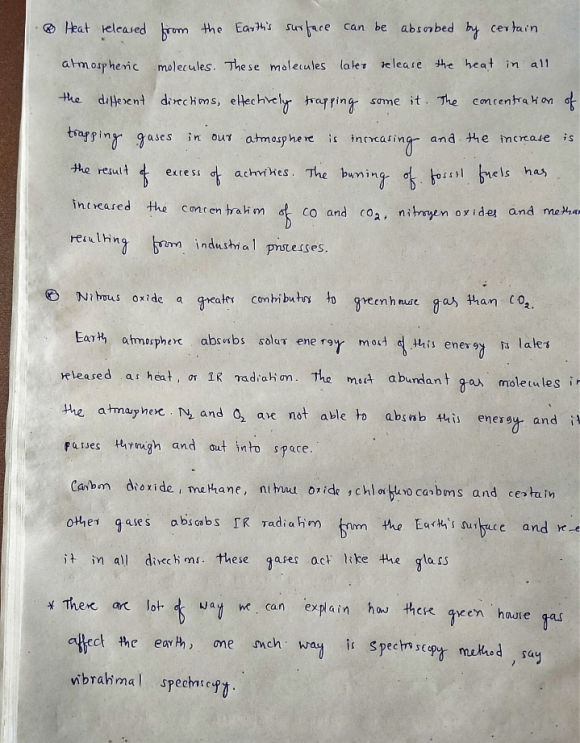 Heat released from the Earth's surface can be absorbed by certain
atmospheric molecules. These molecules later release the heat in all
the different directions, effectively trapping some it. The concentration of
trapping gases in our atmosphere is increasing and the increase is
the result of excess of activities. The buning of fossil fuels has
increased the concentration of CO and CO2, nitrogen oxides and
resulting from industrial processes.
Nitrous oxide a greater contributor to greenhouse gas than CO2.
Earth atmosphere absorbs solar energy most of this energy is later
released as heat, or IR radiation. The most abundant gas molecules in
the atmosphere. N2 and O2 are not able to absorb this energy and it
passes through and out into space.
Carbon dioxide, methane, nitrous oxide, chlorflurocarbons and certain
other gases absorbs IR radiation from the Earth's surface and
it in all directions. these gases act like the glass
* There are lot of way we can explain how these green house gas
affect the earth, one such way is spectroscopy method, say
vibrational spectroscopy.